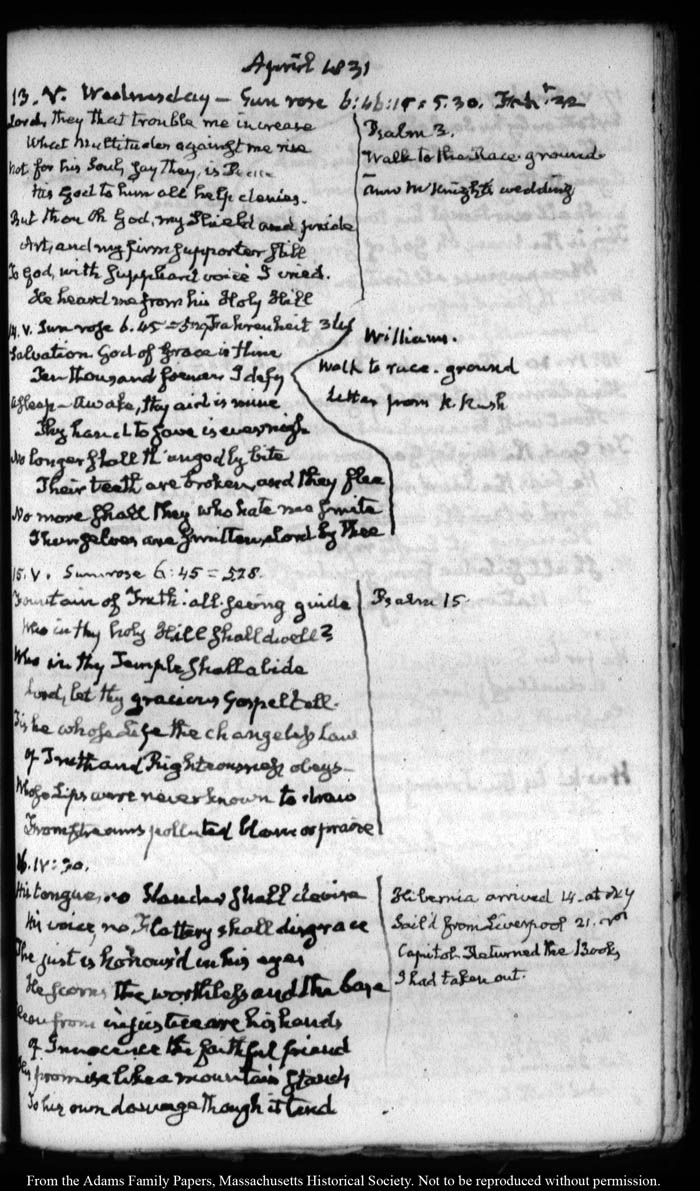 April 1831
13. V. Wednesday — Sun rose 6:46:15 = 5.30. Fah.t 32
Lord, they that trouble me increase
What Multitudes against me rise
Not for his Soul, say They, is
His God to him all help denies.
But thou Oh God, my Shield and pride
Art, and my firm Supporter still
To God, with Suppliant voice I cried.
He heard me from his Holy Hill
Psalm 3.
Walk to the Race-ground
Ann McKnight's wedding
14. V. Sun rose 6.45 = Fahrenheit
Salvation God of Grace is thine
Ten thousand foemen I defy
Asleep — Awake, thy aid is mine
Thy hand to save is ever nigh
No longer shall th' ungodly bite
Their teeth are broken, and they flee
No more shall They who hate me smite
Themselves are smitten, Lord by Thee
Williams.
Walk to race-ground
Letter from R. Rush
15. V. Sun rose 6:45 = 528.
Fountain of Truth: all-seeing guide
Who in thy holy Hill shall dwell?
Who in thy Temple shall abide
Lord, let thy gracious Gospel tell.
Tis he whose Life the changeless Law
Of Truth and Righteousness obeys—
Whose Lips were never known to draw
From streams polluted blame or praise
Psalm 15.
16. IV:30.
His tongue, no Slander shall devise
His voice, no Flattery shall disgrace
The just is honour'd in his eyes
He scorns the worthless and the base
Clean from injustice are his hands
Of Innocence the faithful friend
His promise like a mountain stands
To his own damage though it tend
Hibernia arrived 14. at N.Y
Sail'd from Liverpool 21.
Capitol. Returned the Books
I had taken out.
From the Adams Family Papers, Massachusetts Historical Society. Not to be reproduced without permission.